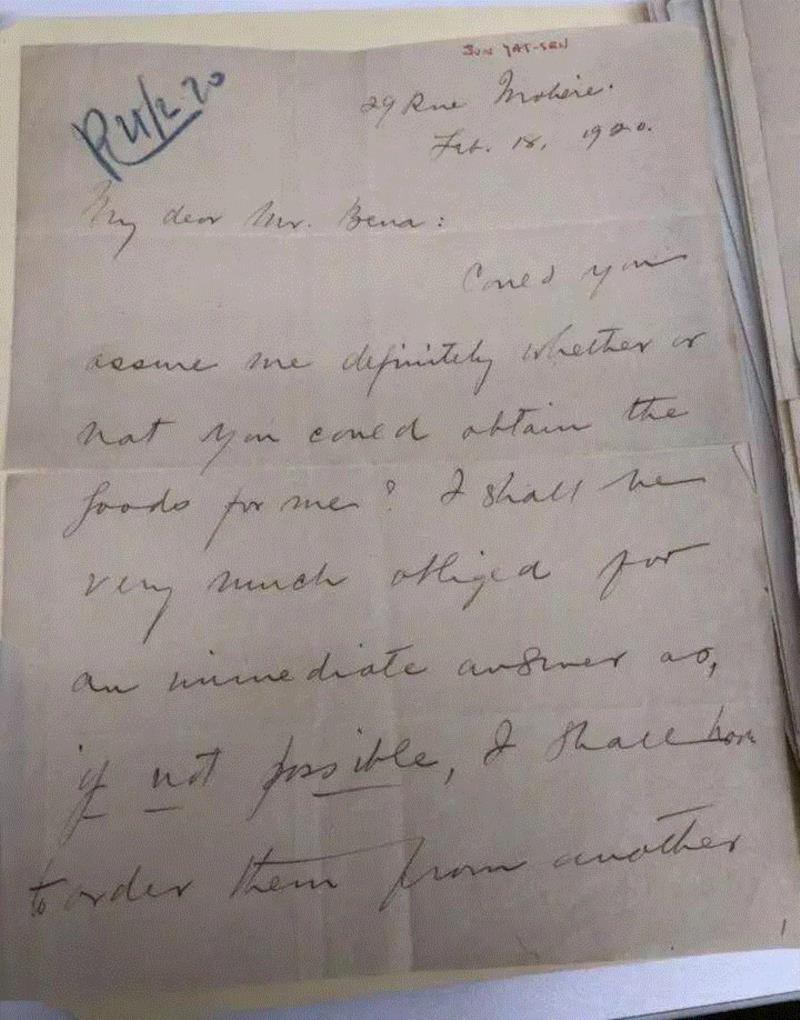 SUN YAT-SEN
R 21/2 20
29 Rue Molière.
Feb. 18, 1920.
My dear Mr. Bena:
Could you
assure me definitely whether or
not you could obtain the
goods for me? I shall be
very much obliged for
an immediate answer as,
if not possible, I shall have
to order them from another